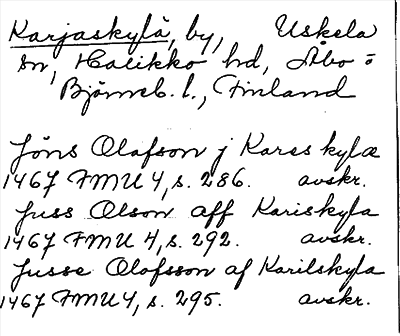 Karjaskylä, by, Uskela
sn, Halikko hd, Åbo o
Björneb. l., Finland
Jöns Olafson j Kareskylæ
1467 FMU 4, s. 286. avskr.
Juss Olson aff Kariskyla
1467 FMU 4, s. 292. avskr.
Jusse Olofsson af Karilskyla
1467 FMU 4, s. 295. avskr.